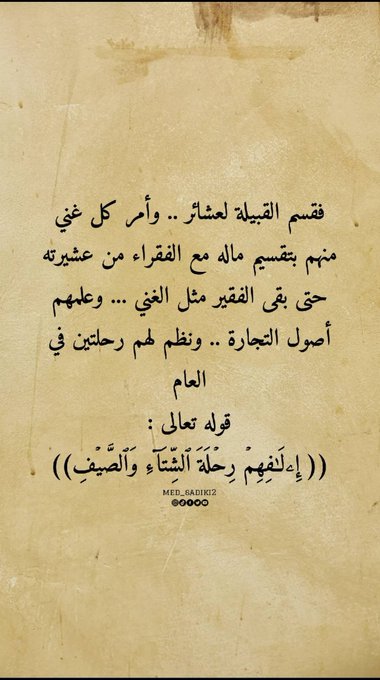 فقسم القبيلة لعشائر .. وأمر كل غني
منهم بتقسيم ماله مع الفقراء من عشيرته
حتى بقى الفقير مثل الغني ... وعلمهم
أصول التجارة .. ونظم لهم رحلتين في
العام
قوله تعالى :
(( إِۦلَٰفِهِمۡ رِحۡلَةَ ٱلشِّتَآءِ وَٱلصَّيۡفِ))
MED_SADIKI2